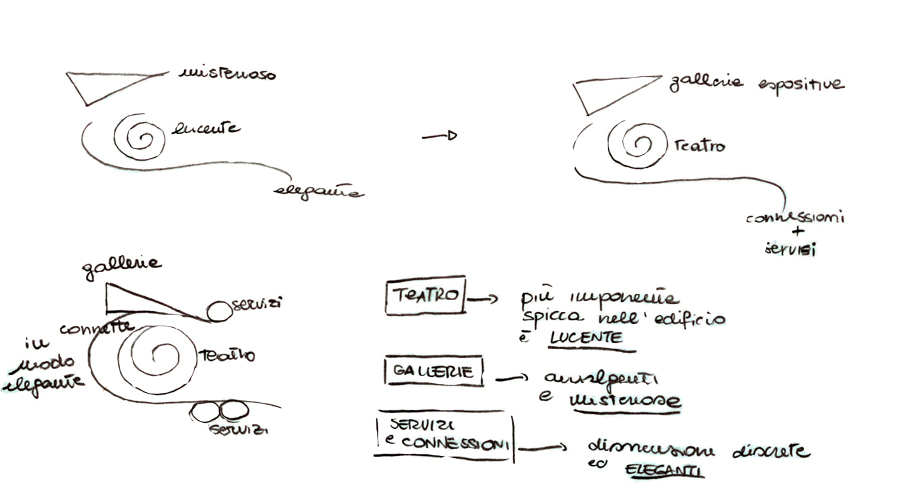 misterioso
lucente
elegante
gallerie espositive
Teatro
connessioni
+
servizi
gallerie
servizi
connette
in
modo
elegante
Teatro
servizi
TEATRO
più imponente
spicca nell'edificio
è LUCENTE
GALLERIE
avvolgenti
e misteriose
SERVIZI
e CONNESSIONI
discrete
ed ELEGANTI